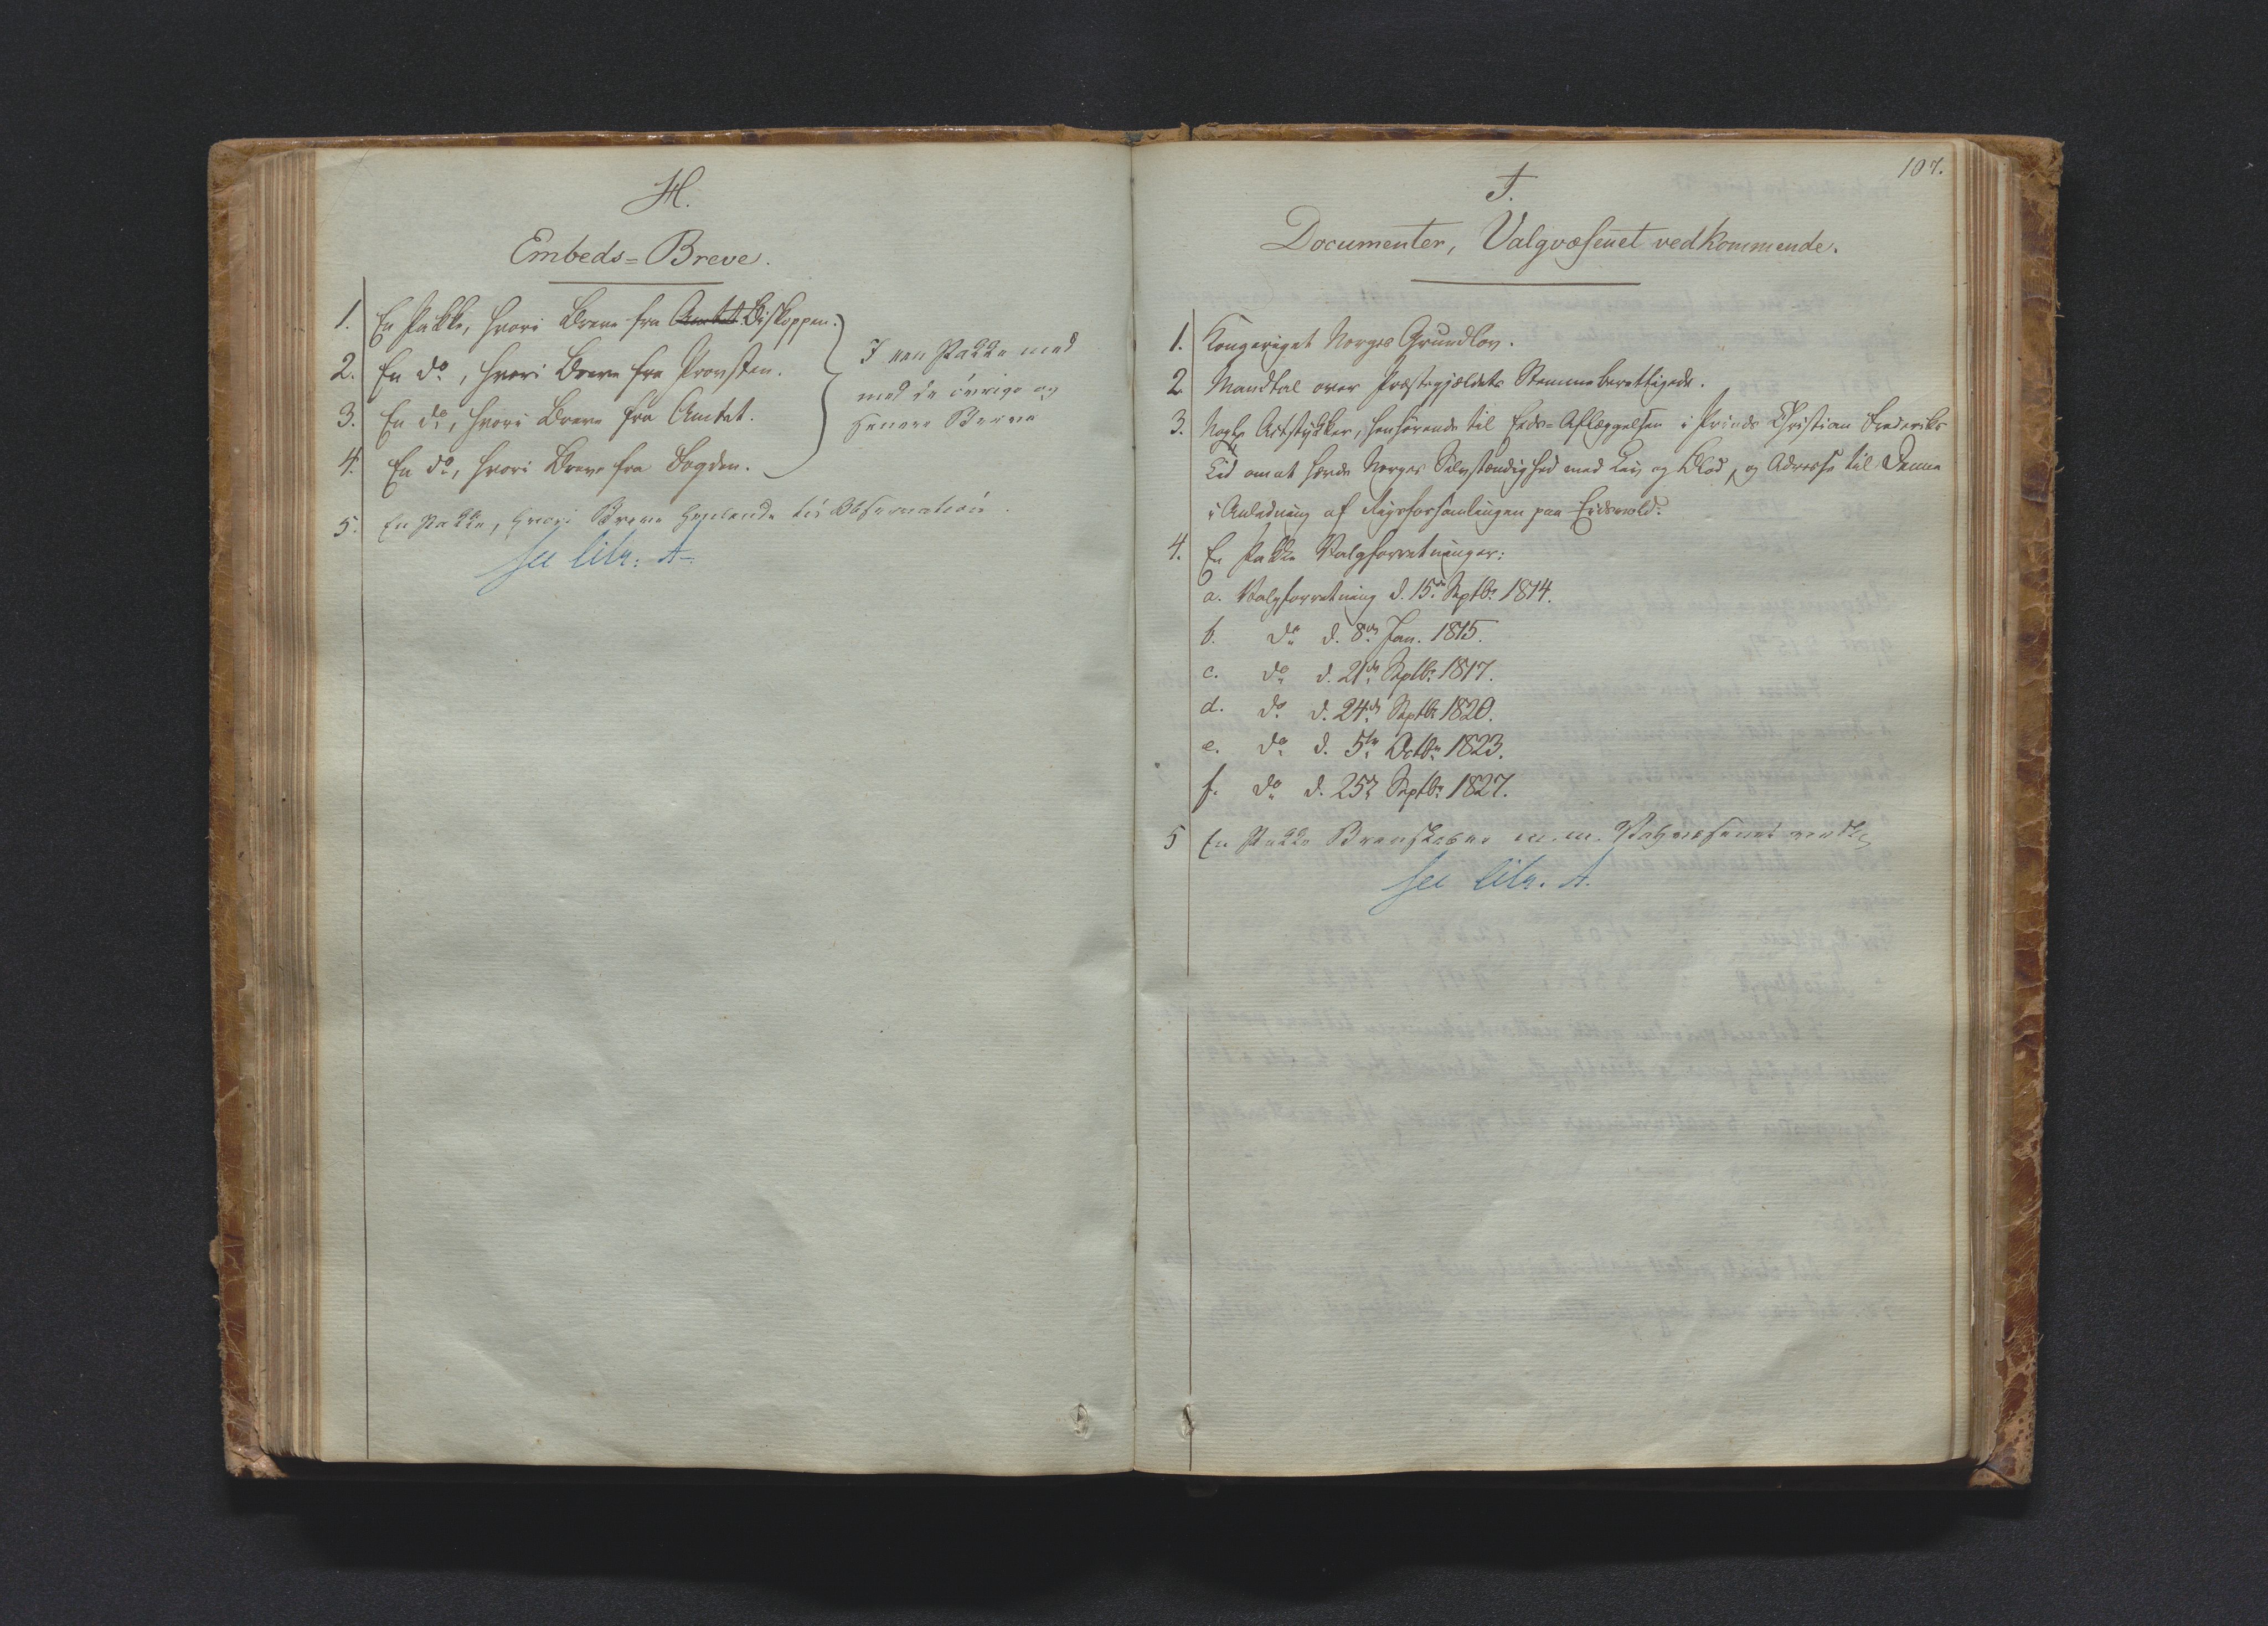 H.
Embeds=Breve.
1. En Pakke, hvori Breve fra Amtet Biskoppen.
2. En do, hvori Breve fra Provsten.
3. En do, hvori Breve fra Amtet.
4. En do, hvori Breve fra Fogden.
I een Pakke med
med de övrige og
senere Breve
5. En Pakke, hvori Breve henlende til Observation.
see litr. A.
107.
I.
Documenter, Valgvæsenet vedkommende.
1. Kongeriget Norges Grundlov.
2. Mandtal over Præstegjældets Stemmeberettigede.
3. Nogle Actstykker, henhörende til Eeds=Aflæggelsen i Prinds Christian Frederiks
Tid om at hævde Norges Selvstændighed med Liv og Blod, og Adresse til Denne
i Anledning af Rigsforsamlingen paa Eidsvold.
4. En Pakke Valgforretninger:
a. Valgforretning d. 15de Septbr 1814.
b. do d. 8de Jan. 1815.
c. do d. 21de Septbr 1817.
d. do d. 24de Septbr 1820.
e. do d. 5te Octbr 1823.
f. do d. 25de Septbr 1827.
5 En Pakke Brevskaber m.m. Valgvæsenet vedk.
see litr. A.